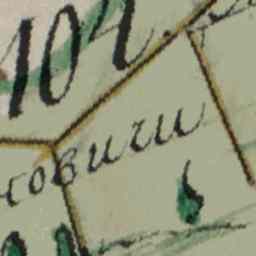 104.
ковичи